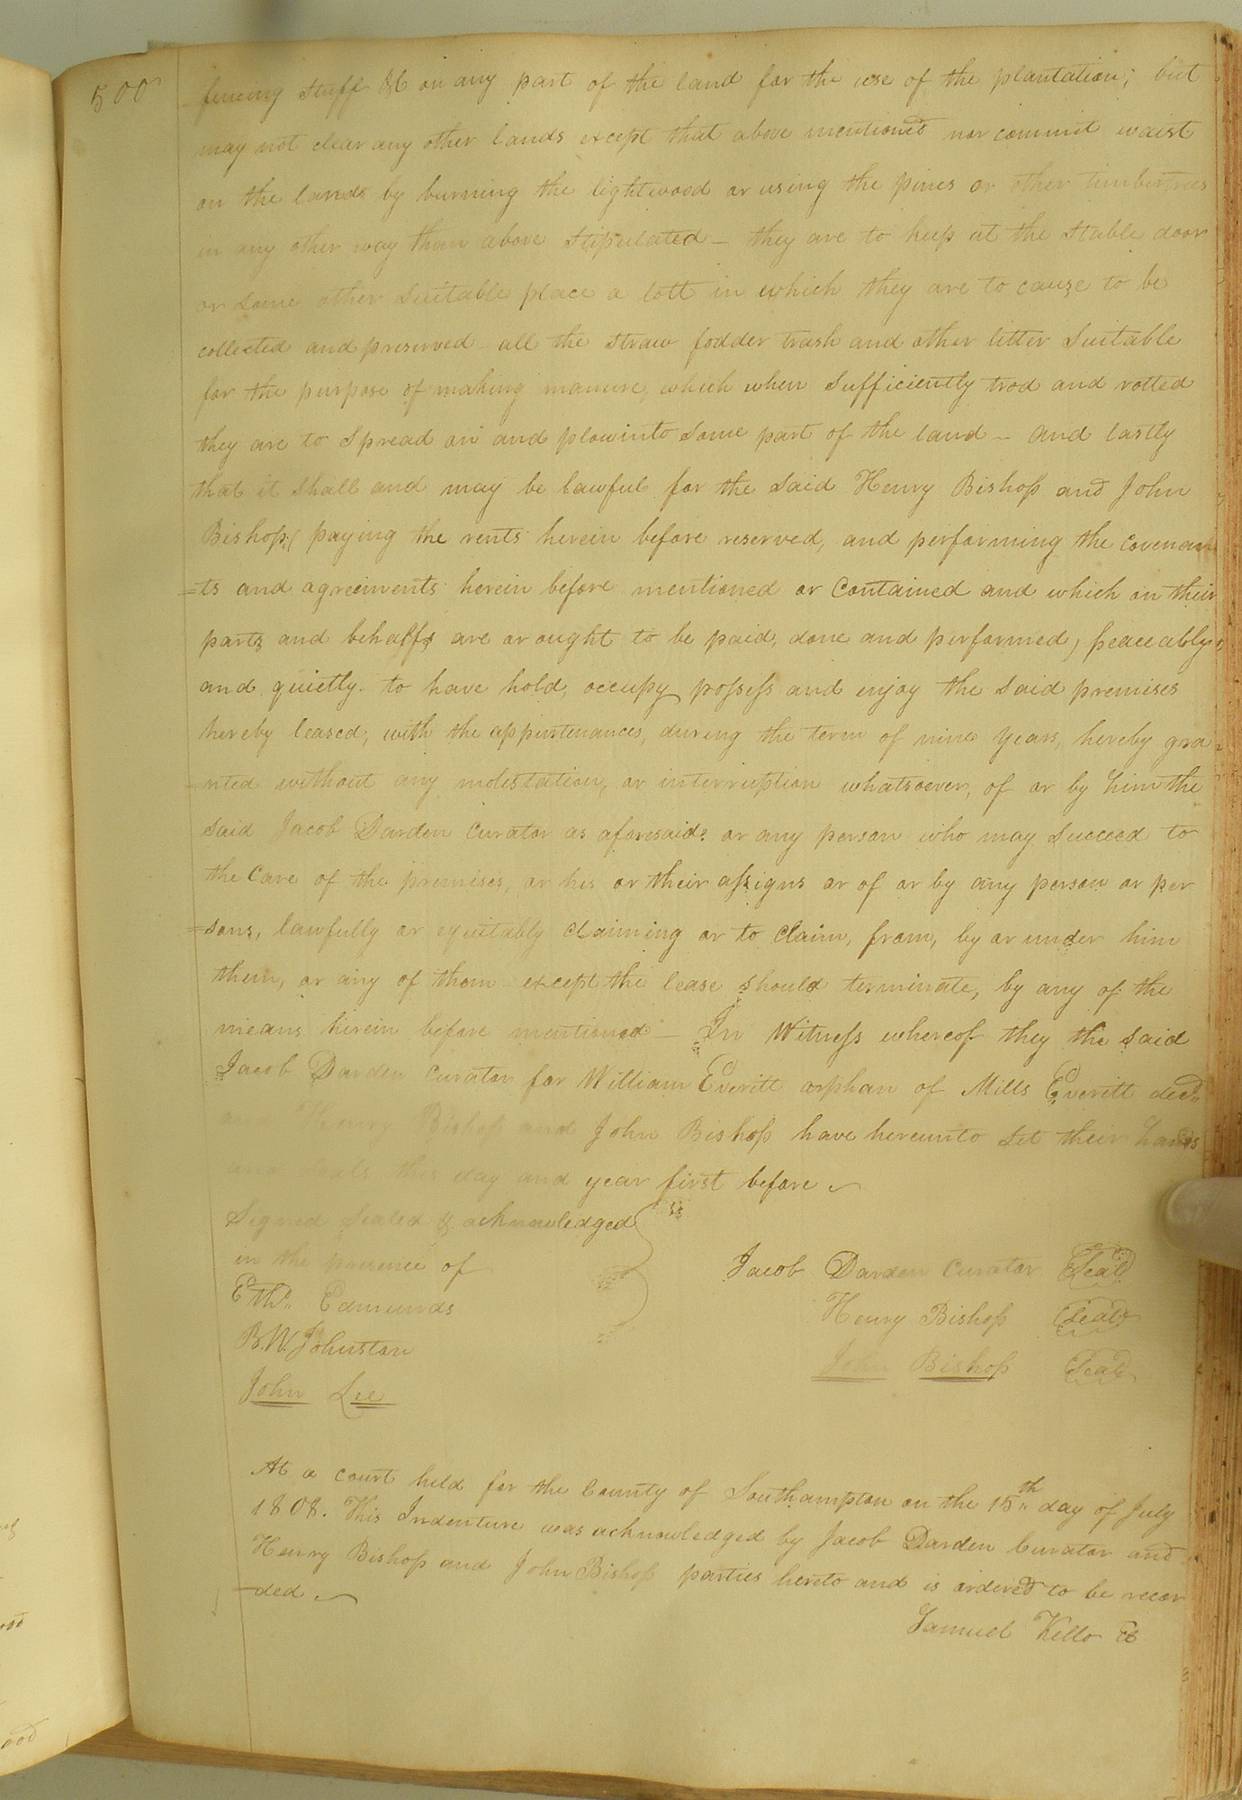 500
fencing stuff &c on any part of the land for the use of the plantation; but
may not clear any other lands except that above mentioned nor commit waist
on the lands by burning the lightwood or using the pines or other timbertrees
in any other way than above stipulated - they are to keep at the stable door
or some other suitable place a lott in which they are to cause to be
collected and preserved all the straw fodder trash and other litter suitable
for the purpose of making manure, which when sufficiently trod and rotted
they are to spread on and plow into some part of the land - and lastly
that it shall and may be lawful for the said Henry Bishop and John
Bishop, paying the rents herein before reserved, and performing the covenan
=ts and agreements herein before mentioned or contained and which on their
parts and behalfs are or ought to be paid, done and performed, peaceably
and quietly to have hold, occupy possess and enjoy the said premises
hereby leased, with the appurtenances, during the term of nine years, hereby gra=
=nted without any molestation, or interruption whatsoever, of or by him the
said Jacob Darden curator as aforesaid or any person who may succeed to
the care of the premises, or his or their assigns or of or by any person or per
=sons, lawfully or equitably claiming or to claim, from, by or under him
them, or any of them except the lease should terminate, by any of the
means herein before mentioned - In Witness whereof they the said
Jacob Darden curator for William Everitt orphan of Mills Everitt decd.
and Henry Bishop and John Bishop have hereunto set their hands
and seals this day and year first before
Signed Sealed & acknowledged
in the presence of
Eth. Edmunds
B.W. Johnston
John Lee
Jacob Darden Curator Seal
Henry Bishop Seal
John Bishop Seal
At a court held for the County of Southampton on the 18th day of July
1808. This Indenture was acknowledged by Jacob Darden Curator and
Henry Bishop and John Bishop parties hereto and is ordered to be recor
-ded.
Samuel Kello